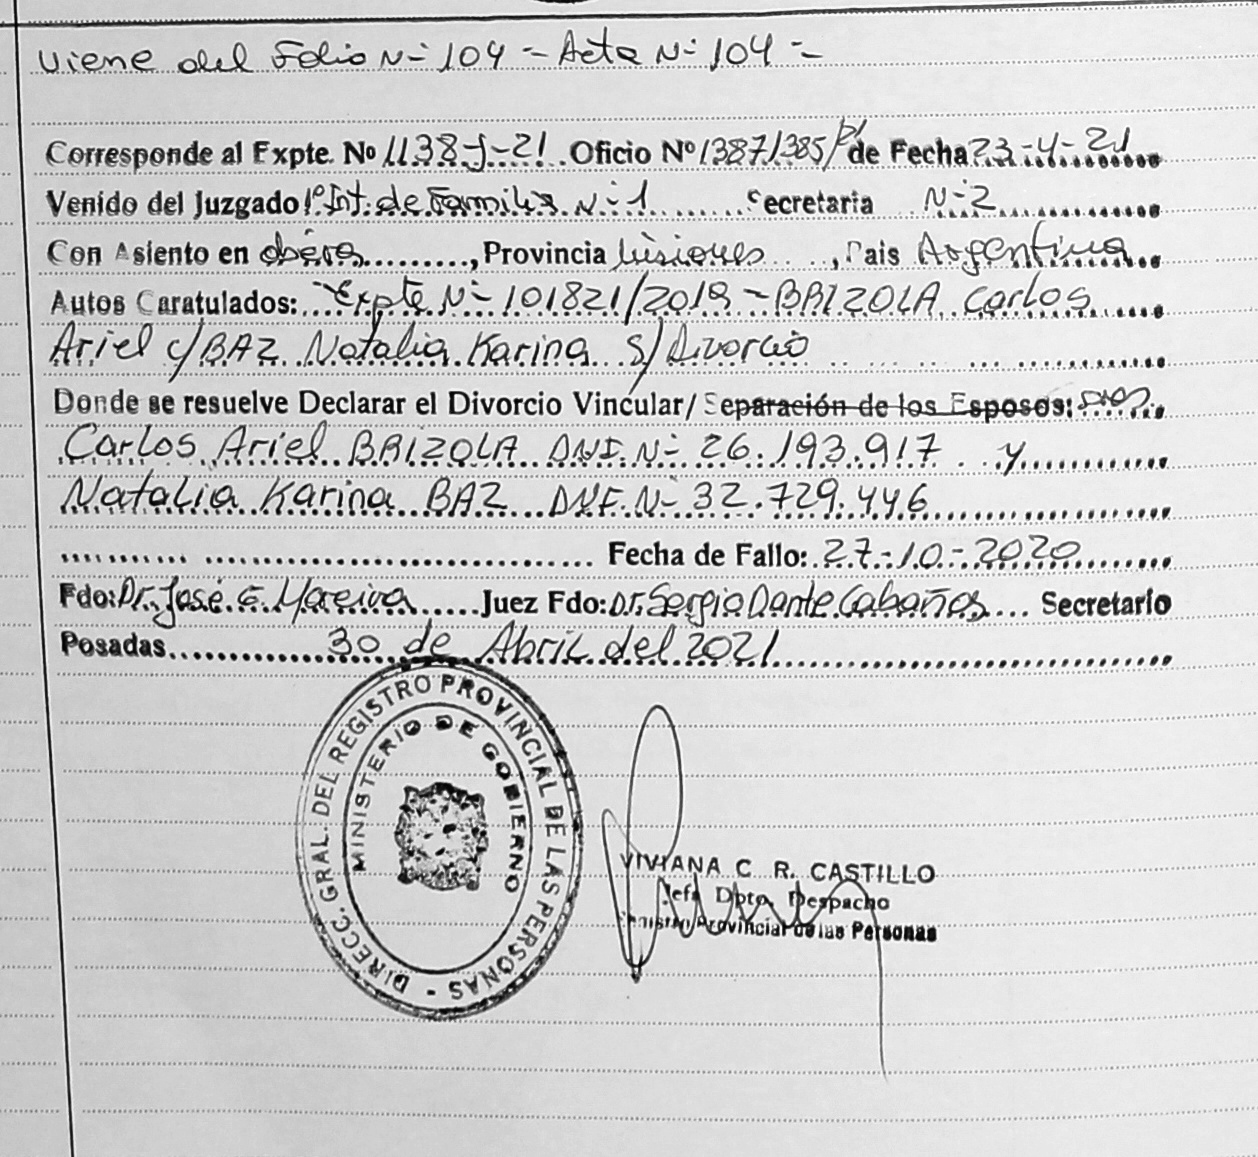 Viene del Folio Nº 104 - Acta Nº 104 -
Corresponde al Expte. Nº 1138-J-21 Oficio Nº 1387/385/21 de Fecha 23-4-21
Venido del Juzgado 1º Int. de Familia Nº 1 Secretaria Nº 2
Con Asiento en oberá, Provincia Misiones, Pais Argentina
Autos Caratulados: Expte Nº 101821/2019 - BRIZOLA Carlos
Ariel c/ BAZ Natalia Karina S/ Divorcio
Donde se resuelve Declarar el Divorcio Vincular/ Separación de los Esposos:
Carlos Ariel BRIZOLA DNI. Nº 26.193.917 y
Natalia Karina BAZ DNI. Nº 32.729.446
Fecha de Fallo: 27-10-2020
Fdo: Dr. José G. Moreira Juez Fdo: Dr. Sergio Dante Cabaños Secretario
Posadas 30 de Abril del 2021
DIRECC. GRAL. DEL REGISTRO PROVINCIAL DE LAS PERSONAS -
MINISTERIO DE GOBIERNO
VIVIANA C. R. CASTILLO
Jefe Dpto. Despacho
Registro Provincial de las Personas